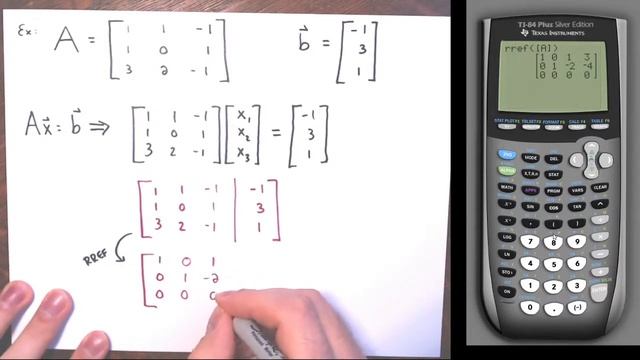 Ex: A = [1 1 -1 b = [-1
1 0 1 3
3 2 -1] 1]
Ax = b ⇒ [1 1 -1 [x₁ = [-1
1 0 1 x₂ 3
3 2 -1] x₃] 1]
[1 1 -1 | -1
1 0 1 | 3
3 2 -1 | 1]
RREF
[1 0 1
0 1 -2
0 0 0
TI-84 Plus Silver Edition
TEXAS INSTRUMENTS
rref([A])
[[1 0 1 3
0 1 -2 -4
0 0 0 0
STAT PLOT F1 TBLSET F2 FORMAT F3 CALC F4 TABLE F5
2ND MODE DEL
ALPHA X,T,θ,n STAT
MATH APPS PRGM VARS CLEAR
x⁻¹ SIN COS TAN ^
x² , ( ) ÷
LOG 7 8 9 ×
LN 4 5 6 −
STO 1 2 3 +
ON 0 . (-) ENTER